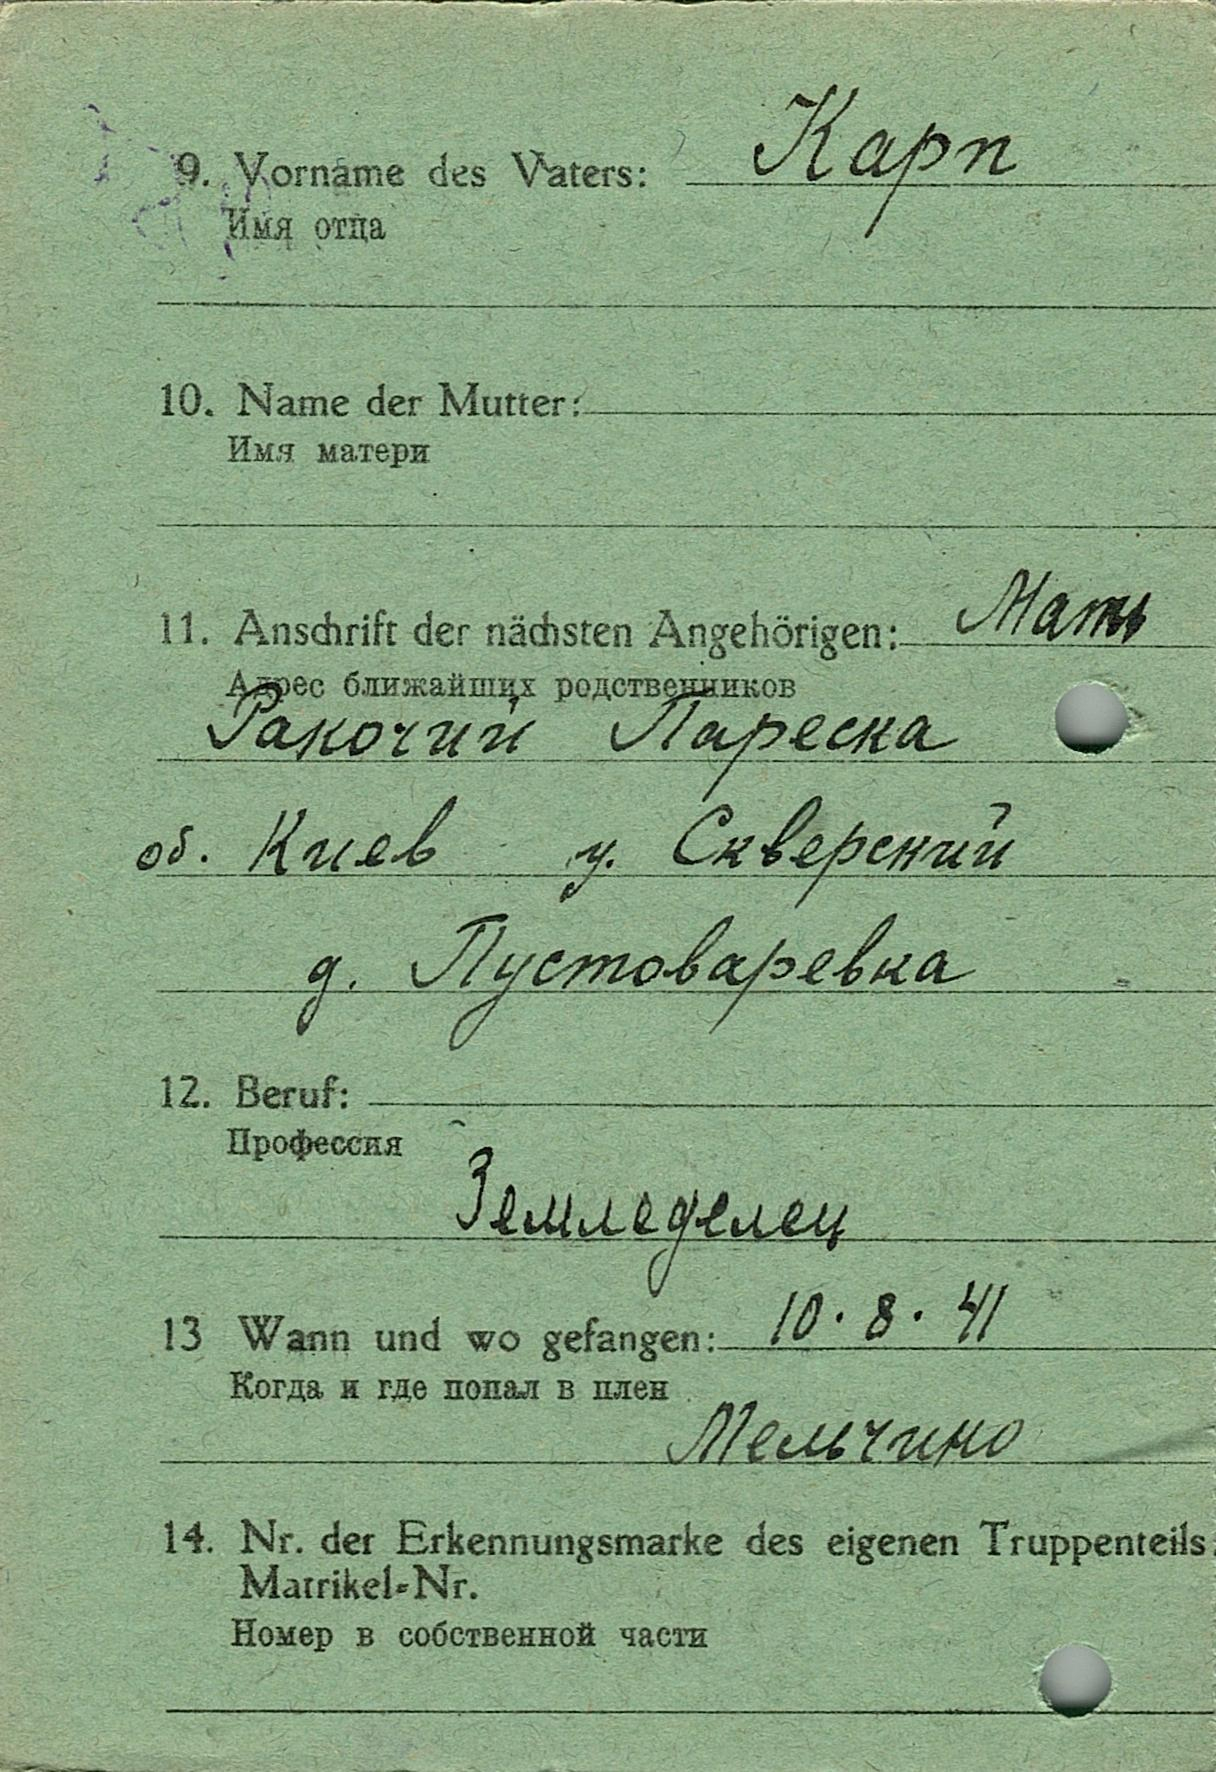 9. Vorname des Vaters: Карп
Имя отца
10. Name der Mutter:
Имя матери
11. Anschrift der nächsten Angehörigen: Мать
Адрес ближайших родственников
Ракочий Пареска
об. Киев у. Скверский
д. Пустоваревка
12. Beruf:
Профессия
Земледелец
13 Wann und wo gefangen: 10.8.41
Когда и где попал в плен
Мельчино
14. Nr. der Erkennungsmarke des eigenen Truppenteils:
Matrikel-Nr.
Номер в собственной части